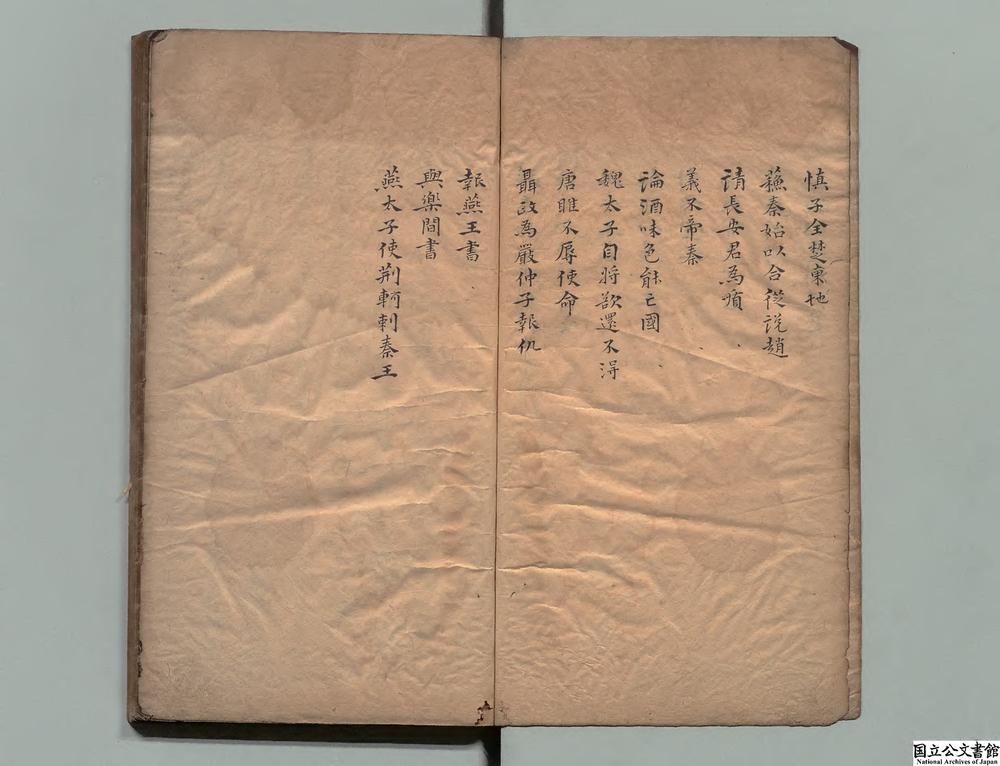 慎子全楚東地
蘓秦始以合従説趙
請長安君為質
義不帝秦
論酒味色能亡國
魏太子自将欲還不得
唐雎不辱使命
聶政為嚴仲子報仇
報燕王書
與樂間書
燕太子使荆軻刺秦王
国立公文書館
National Archives of Japan